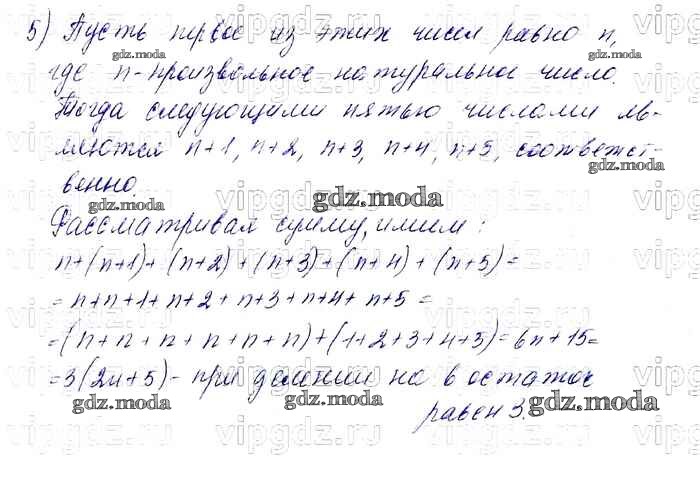 5) Пусть первое из этих чисел равно n,
где n - произвольное натуральное число.
Тогда следующими пятью числами яв-
ляются n+1, n+2, n+3, n+4, n+5, соответст-
венно.
Рассматривая сумму, имеем:
n+(n+1)+(n+2)+(n+3)+(n+4)+(n+5)=
=n+n+1+n+2+n+3+n+4+n+5=
=(n+n+n+n+n+n)+(1+2+3+4+5)=6n+15=
=3(2n+5) - при делении на 6 остаток
равен 3.
gdz.moda
gdz.moda
gdz.moda
gdz.moda
gdz.moda
gdz.moda
gdz.moda
gdz.moda
gdz.moda
gdz.moda
gdz.moda
vipgdz.ru